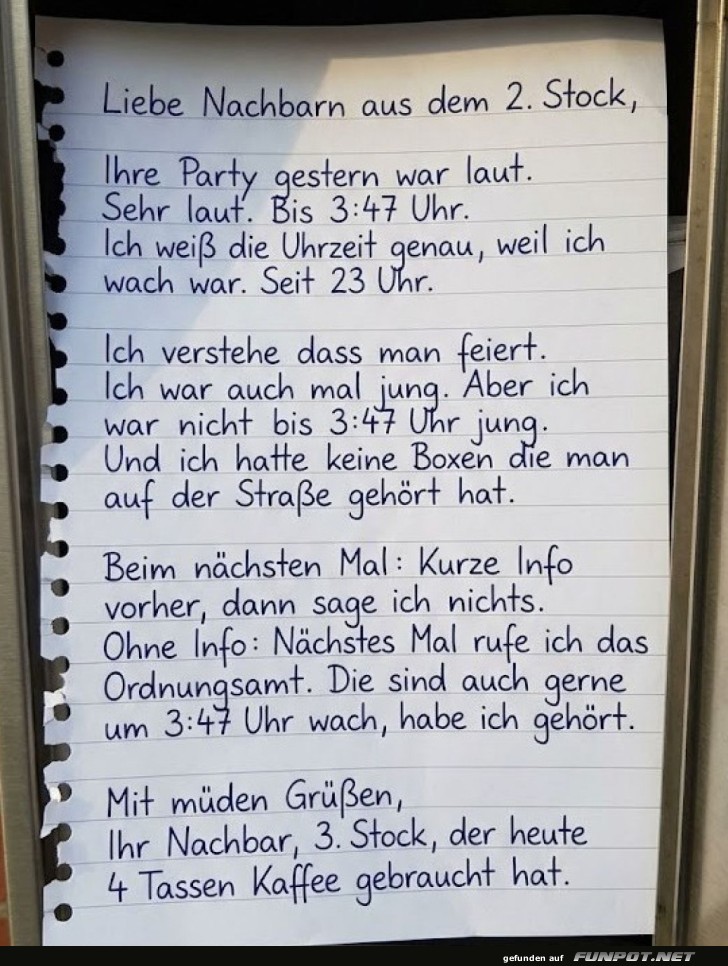 Liebe Nachbarn aus dem 2. Stock,
Ihre Party gestern war laut.
Sehr laut. Bis 3:47 Uhr.
Ich weiß die Uhrzeit genau, weil ich
wach war. Seit 23 Uhr.
Ich verstehe dass man feiert.
Ich war auch mal jung. Aber ich
war nicht bis 3:47 Uhr jung.
Und ich hatte keine Boxen die man
auf der Straße gehört hat.
Beim nächsten Mal: Kurze Info
vorher, dann sage ich nichts.
Ohne Info: Nächstes Mal rufe ich das
Ordnungsamt. Die sind auch gerne
um 3:47 Uhr wach, habe ich gehört.
Mit müden Grüßen,
Ihr Nachbar, 3. Stock, der heute
4 Tassen Kaffee gebraucht hat.
gefunden auf FUNPOT.NET